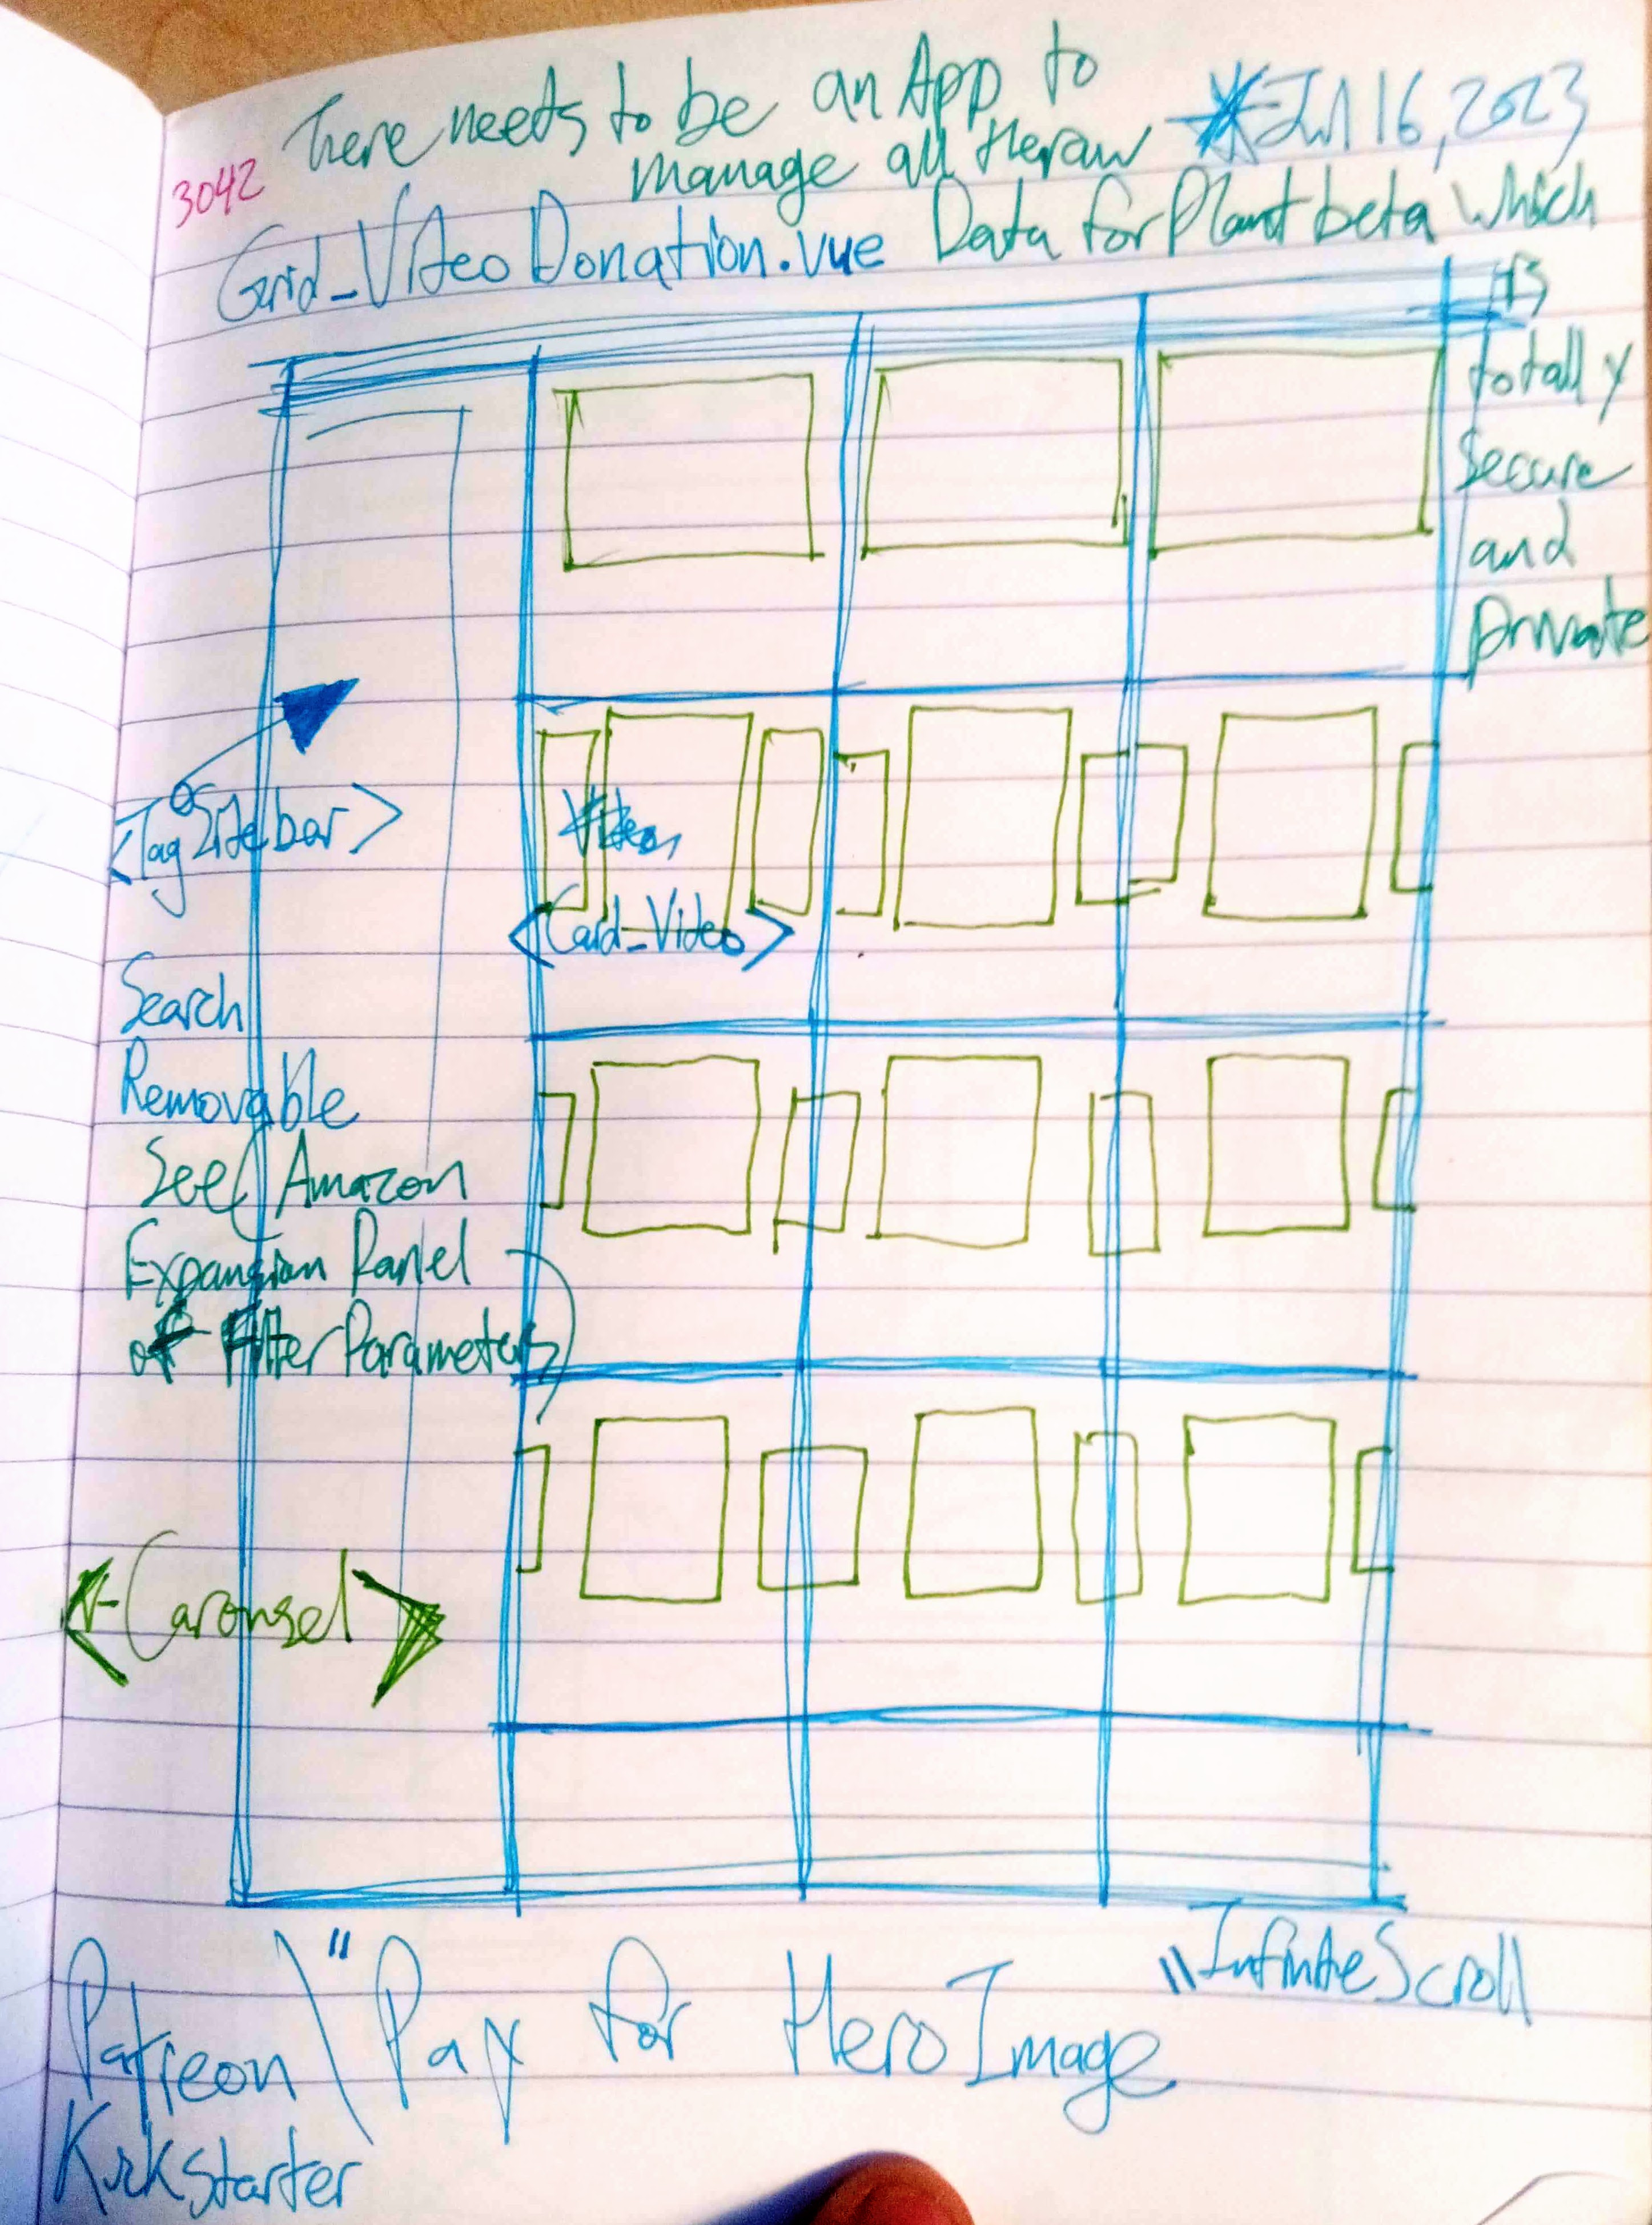 There needs to be an App to
manage all the raw
Data for Plantbeta which
is
totally
Secure
and
private
3042
16, 2023
Grid_VideoDonation.vue
<TagSidebar>
Video
<Card_Video>
Search
Removable
See Amazon
Expansion Panel
of Filter Parameters
<v-Carousel>
"Infinite Scroll
Patreon \ "Pay for HeroImage
Kickstarter